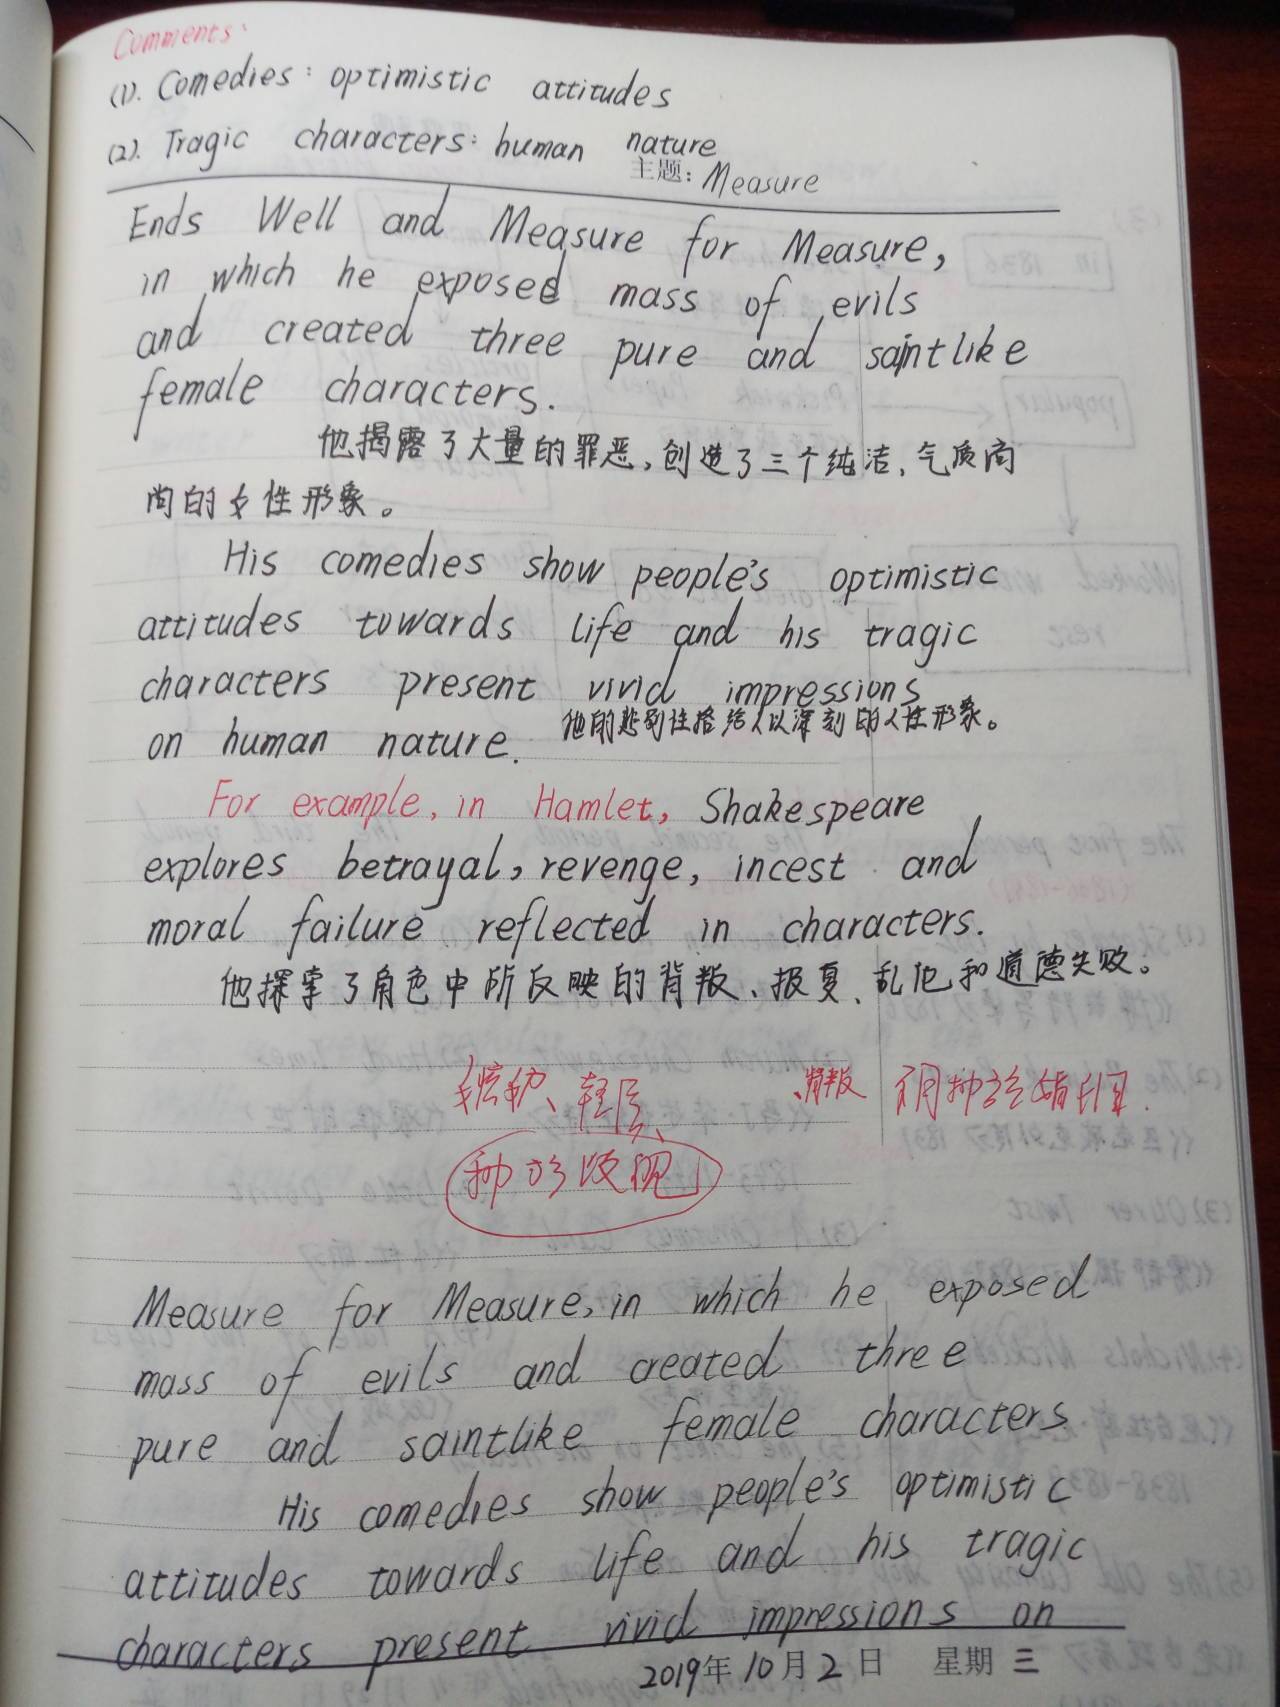 Comments:
(1). Comedies: optimistic attitudes
(2). Tragic characters: human nature
主题: Measure
Ends Well and Measure for Measure,
in which he exposed mass of evils
and created three pure and saintlike
female characters.
他揭露了大量的罪恶，创造了三个纯洁、气质高
尚的女性形象。
His comedies show people's optimistic
attitudes towards life and his tragic
characters present vivid impressions
on human nature.
他的悲剧性格给人以深刻的人性形象。
For example, in Hamlet, Shakespeare
explores betrayal, revenge, incest and
moral failure reflected in characters.
他探索了角色中所反映的背叛、报复、乱伦和道德失败。
、背叛
种族歧视
Measure for Measure, in which he exposed
mass of evils and created three
pure and saintlike female characters
His comedies show people's optimistic
attitudes towards life and his tragic
characters present vivid impressions on
2019年10月2日 星期三